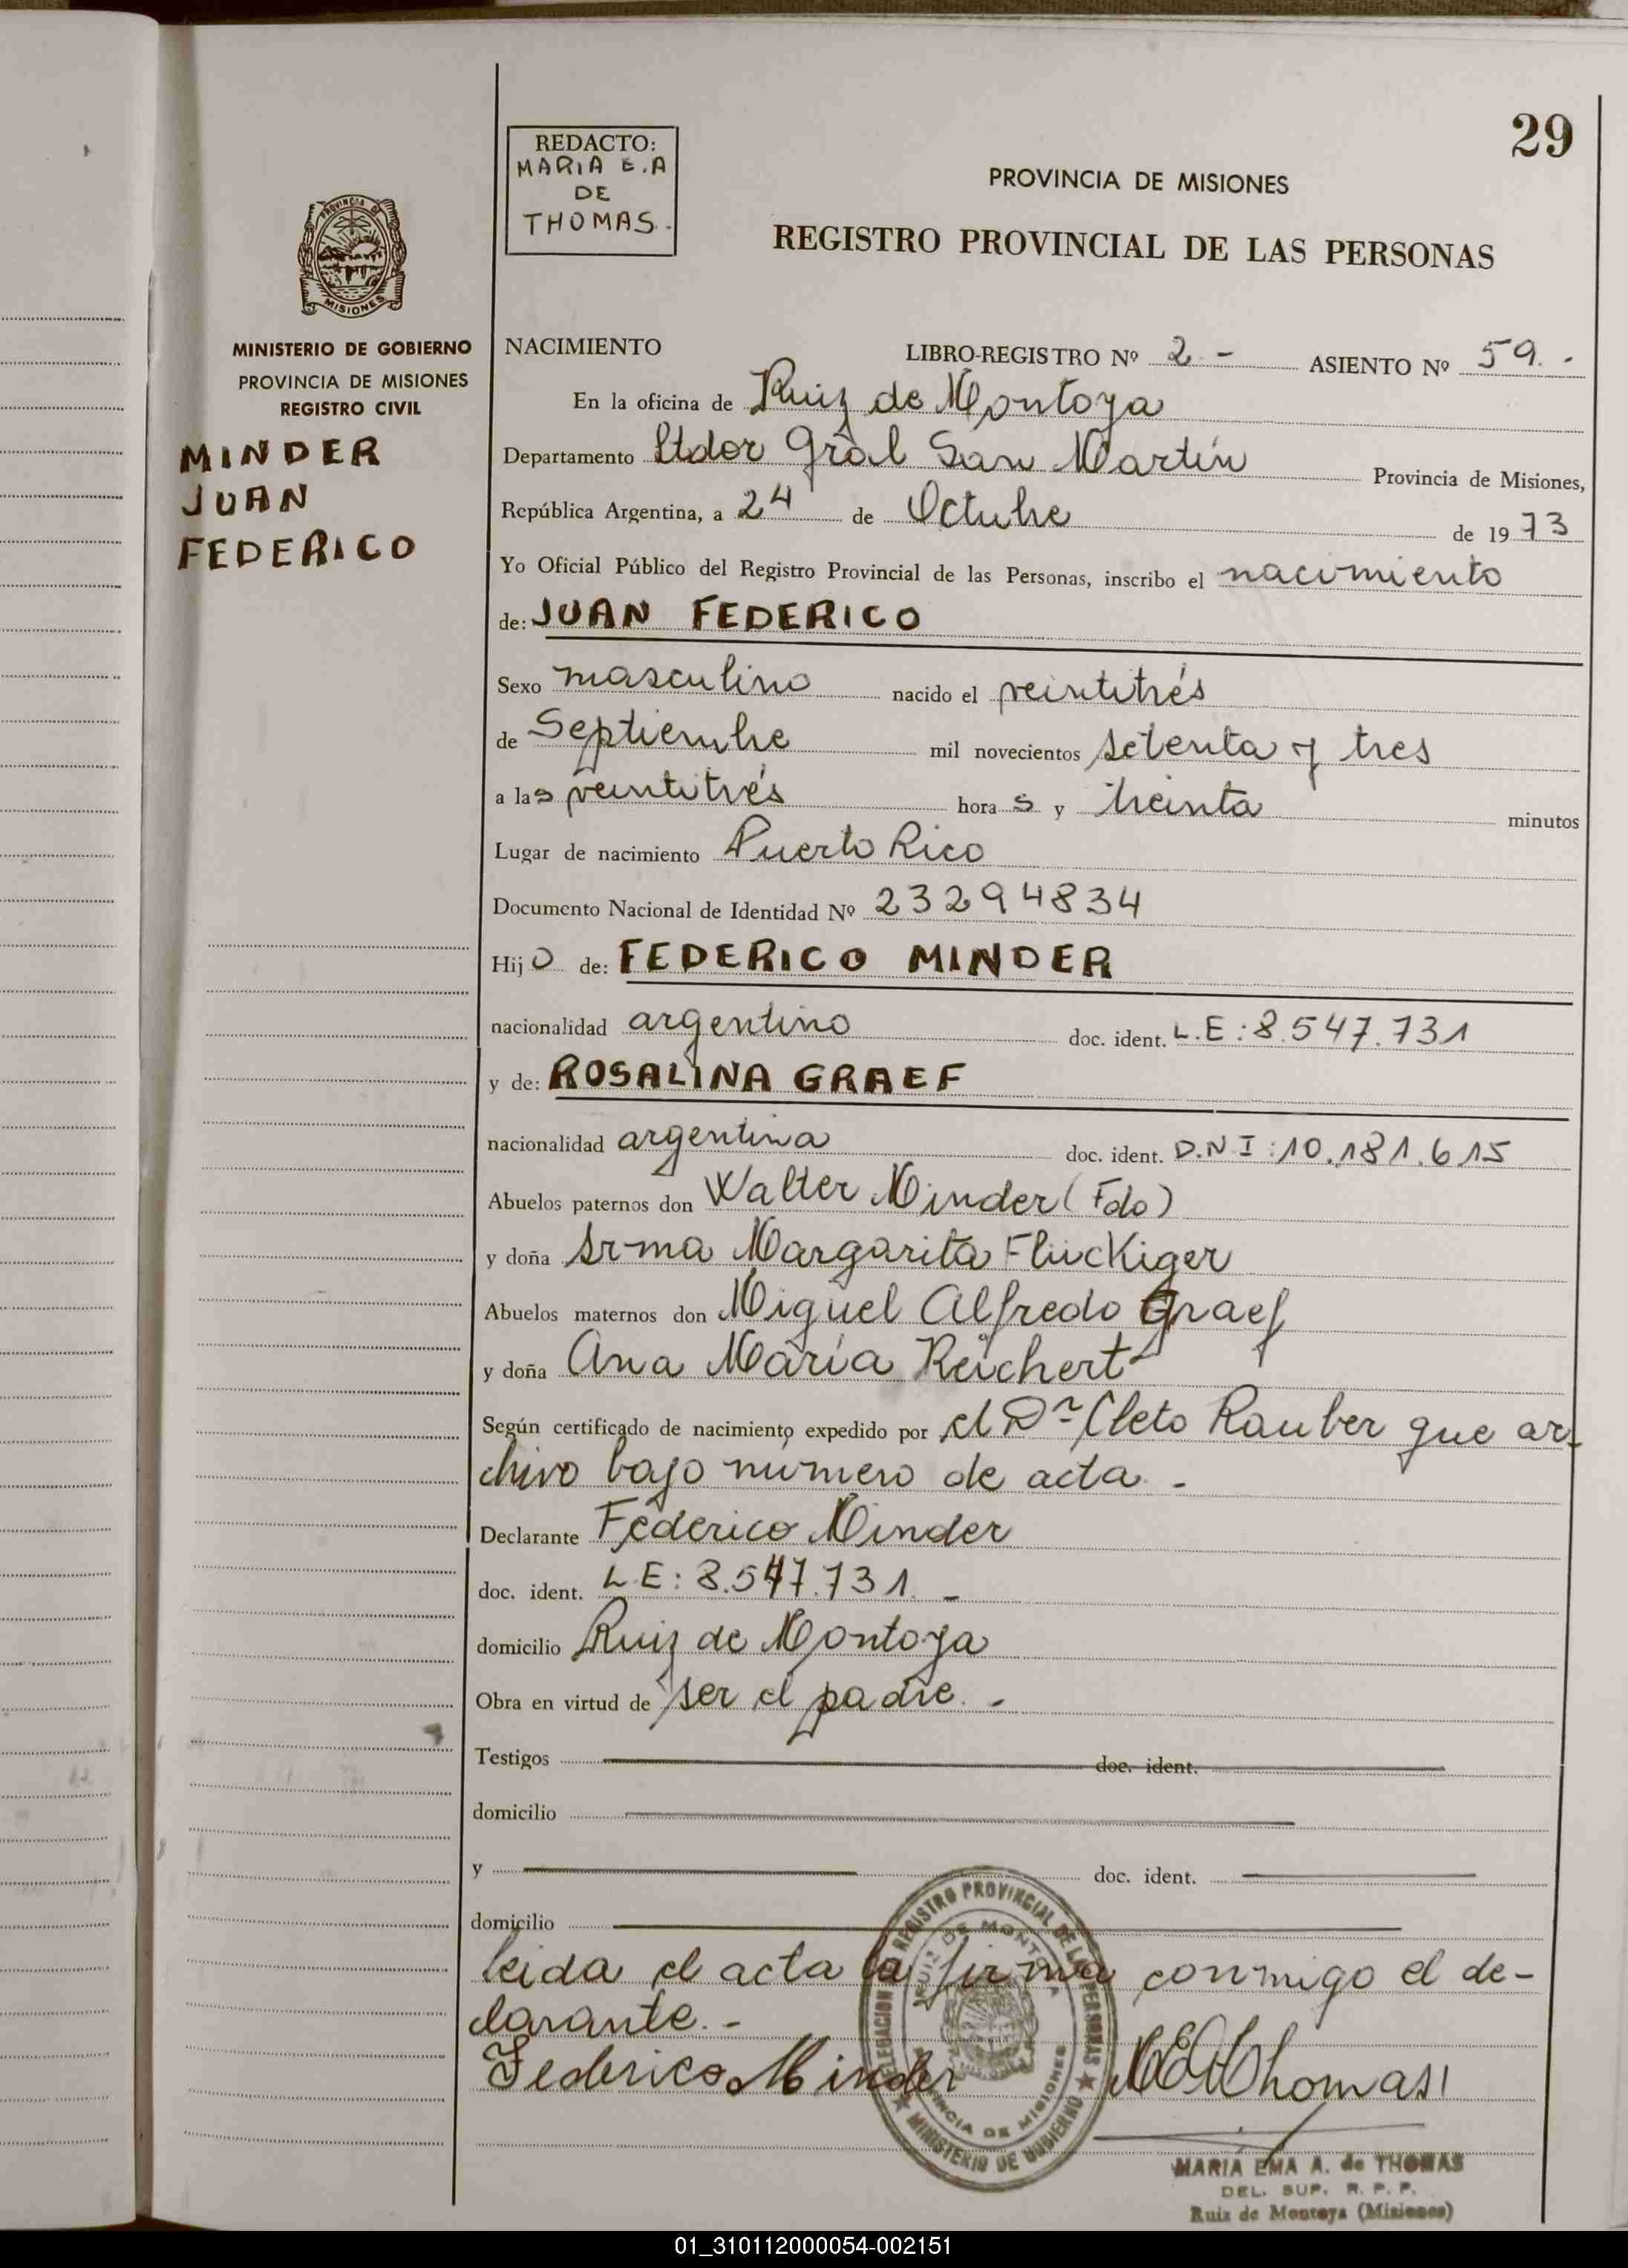 29
REDACTO:
MARIA E.A
DE
THOMAS.
PROVINCIA DE MISIONES
REGISTRO PROVINCIAL DE LAS PERSONAS
PROVINCIA DE
MISIONES
MINISTERIO DE GOBIERNO
PROVINCIA DE MISIONES
REGISTRO CIVIL
MINDER
JUAN
FEDERICO
NACIMIENTO LIBRO-REGISTRO Nº 2 - ASIENTO Nº 59. -
En la oficina de Ruiz de Montoya
Departamento Ltdor Gral San Martín Provincia de Misiones,
República Argentina, a 24 de Octubre de 1973
Yo Oficial Público del Registro Provincial de las Personas, inscribo el nacimiento
de: JUAN FEDERICO
Sexo masculino nacido el veintitrés
de Septiembre mil novecientos setenta y tres
a las veintitrés horas y treinta minutos
Lugar de nacimiento Puerto Rico
Documento Nacional de Identidad Nº 23294834
Hijo de: FEDERICO MINDER
nacionalidad argentino doc. ident. L.E: 8.547.731
y de: ROSALINA GRAEF
nacionalidad argentina doc. ident. D.N.I: 10.181.615
Abuelos paternos don Walter Minder (Fdo)
y doña Irma Margarita Flückiger
Abuelos maternos don Miguel Alfredo Graef
y doña Ana María Reichert
Según certificado de nacimiento expedido por el Dr Cleto Rauber que ar-
chivo bajo número de acta. -
Declarante Federico Minder
doc. ident. L.E: 8.547.731. -
domicilio Ruiz de Montoya
Obra en virtud de ser el padre. -
Testigos doc. ident.
domicilio
y doc. ident.
domicilio
leida el acta la firma conmigo el de-
clarante. -
Federico Minder MEAThomas
DELEGACION REGISTRO PROVINCIAL DE LAS PERSONAS
RUIZ DE MONTOYA
PROVINCIA DE MISIONES
MINISTERIO DE GOBIERNO
MARIA EMA A. de THOMAS
DEL. SUP. R. P. P.
Ruiz de Montoya (Misiones)
01_310112000054-002151